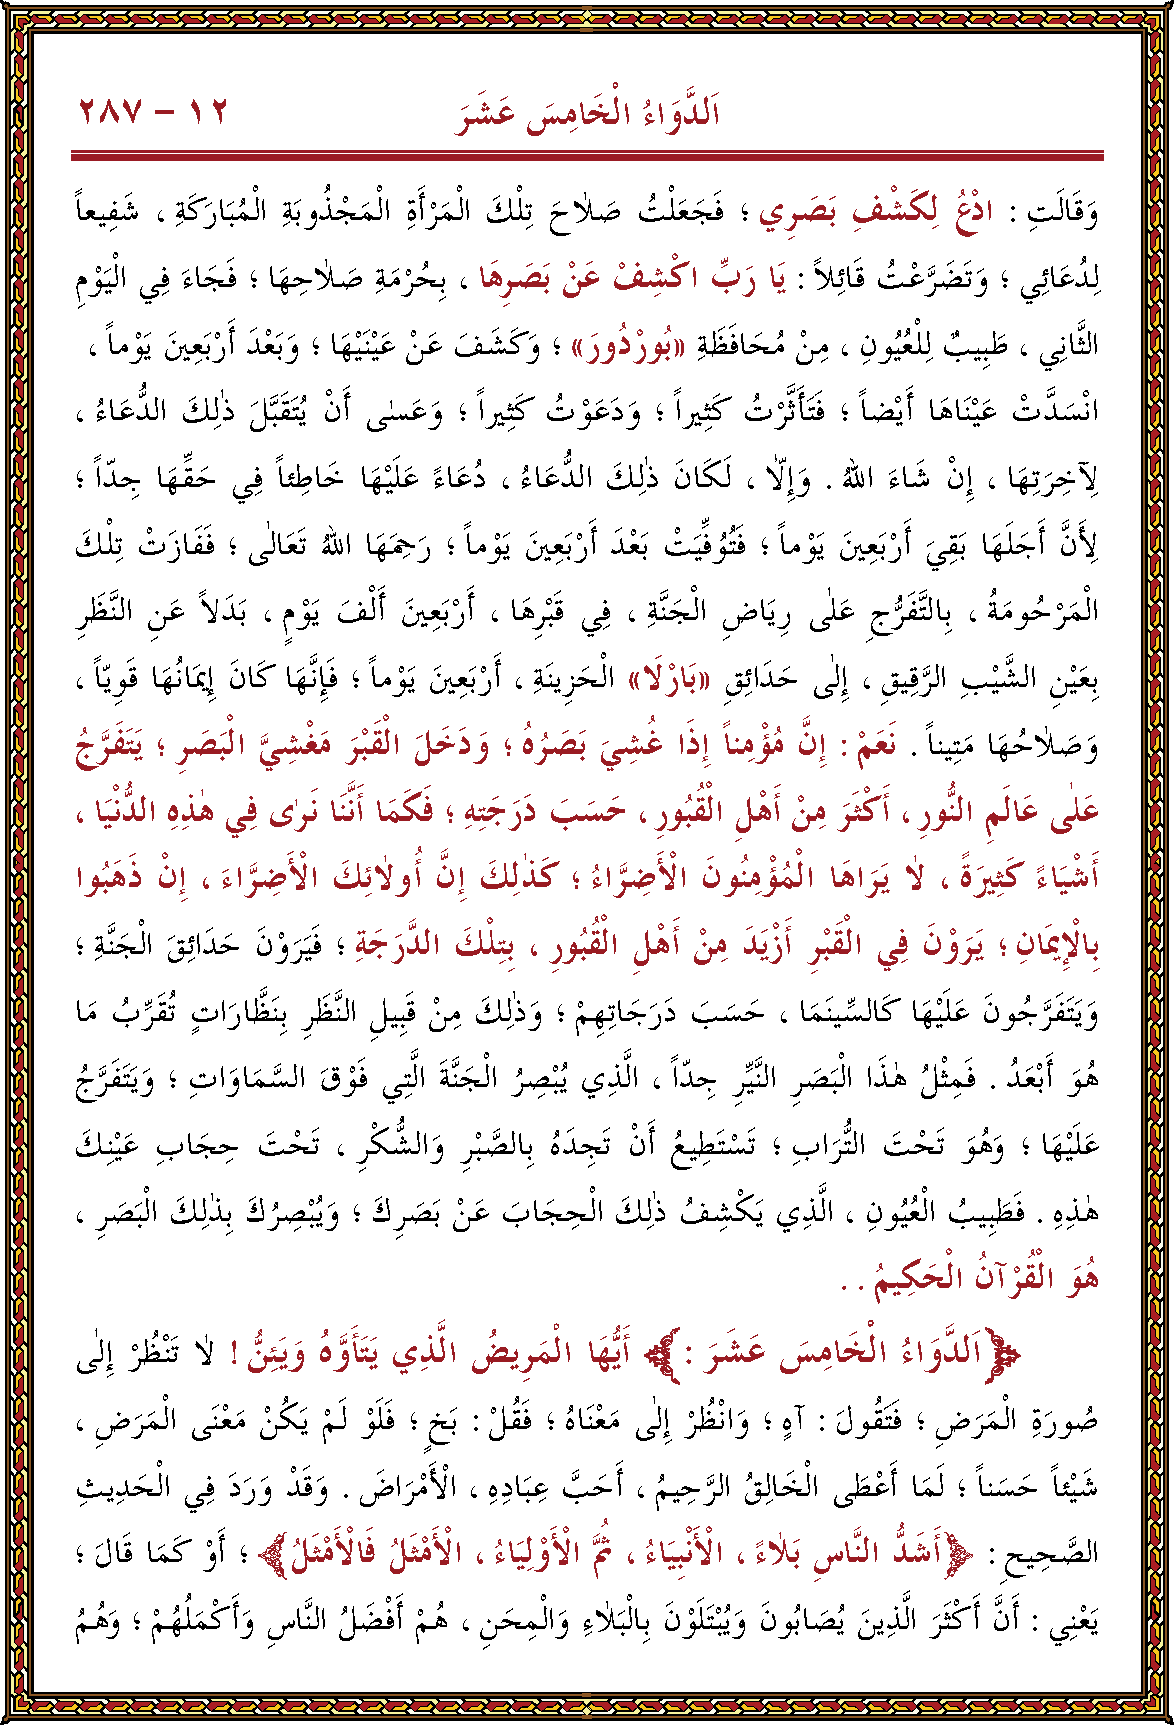 اَلدَّوَاءُ الْخَامِسَ عَشَرَ ١٢ - ٢٨٧
وَقَالَتِ : ادْعُ لِكَشْفِ بَصَرِي ؛ فَجَعَلْتُ صَلَاحَ تِلْكَ الْمَرْأَةِ الْمَجْذُوبَةِ الْمُبَارَكَةِ ، شَفِيعاً
لِدُعَائِي ؛ وَتَضَرَّعْتُ قَائِلاً : يَا رَبِّ اكْشِفْ عَنْ بَصَرِهَا ، بِحُرْمَةِ صَلَاحِهَا ؛ فَجَاءَ فِي الْيَوْمِ
الثَّانِي ، طَبِيبٌ لِلْعُيُونِ ، مِنْ مُحَافَظَةِ «بُورْدُورَ» ؛ وَكَشَفَ عَنْ عَيْنَيْهَا ؛ وَبَعْدَ أَرْبَعِينَ يَوْماً ،
انْسَدَّتْ عَيْنَاهَا أَيْضاً ؛ فَتَأَثَّرْتُ كَثِيراً ؛ وَدَعَوْتُ كَثِيراً ؛ وَعَسٰى أَنْ يُتَقَبَّلَ ذٰلِكَ الدُّعَاءُ ،
لِآخِرَتِهَا ، إِنْ شَاءَ اللهُ . وَإِلَّا ، لَكَانَ ذٰلِكَ الدُّعَاءُ ، دُعَاءً عَلَيْهَا خَاطِئاً فِي حَقِّهَا جِدّاً ؛
لِأَنَّ أَجَلَهَا بَقِيَ أَرْبَعِينَ يَوْماً ؛ فَتُوُفِّيَتْ بَعْدَ أَرْبَعِينَ يَوْماً ؛ رَحِمَهَا اللهُ تَعَالٰى ؛ فَفَازَتْ تِلْكَ
الْمَرْحُومَةُ ، بِالتَّفَرُّجِ عَلٰى رِيَاضِ الْجَنَّةِ ، فِي قَبْرِهَا ، أَرْبَعِينَ أَلْفَ يَوْمٍ ، بَدَلاً عَنِ النَّظَرِ
بِعَيْنِ الشَّيْبِ الرَّقِيقِ ، إِلٰى حَدَائِقِ «بَارْلَا» الْحَزِينَةِ ، أَرْبَعِينَ يَوْماً ؛ فَإِنَّهَا كَانَ إِيمَانُهَا قَوِيّاً ،
وَصَلَاحُهَا مَتِيناً . نَعَمْ : إِنَّ مُؤْمِناً إِذَا غُشِيَ بَصَرُهُ ؛ وَدَخَلَ الْقَبْرَ مَغْشِيَّ الْبَصَرِ ؛ يَتَفَرَّجُ
عَلٰى عَالَمِ النُّورِ ، أَكْثَرَ مِنْ أَهْلِ الْقُبُورِ ، حَسَبَ دَرَجَتِهِ ؛ فَكَمَا أَنَّنَا نَرٰى فِي هٰذِهِ الدُّنْيَا ،
أَشْيَاءً كَثِيرَةً ، لَا يَرَاهَا الْمُؤْمِنُونَ الْأَضِرَّاءُ ؛ كَذٰلِكَ إِنَّ أُولَائِكَ الْأَضِرَّاءَ ، إِنْ ذَهَبُوا
بِالْإِيمَانِ ؛ يَرَوْنَ فِي الْقَبْرِ أَزْيَدَ مِنْ أَهْلِ الْقُبُورِ ، بِتِلْكَ الدَّرَجَةِ ؛ فَيَرَوْنَ حَدَائِقَ الْجَنَّةِ ؛
وَيَتَفَرَّجُونَ عَلَيْهَا كَالسِّينَمَا ، حَسَبَ دَرَجَاتِهِمْ ؛ وَذٰلِكَ مِنْ قَبِيلِ النَّظَرِ بِنَظَّارَاتٍ تُقَرِّبُ مَا
هُوَ أَبْعَدُ . فَمِثْلُ هٰذَا الْبَصَرِ النَّيِّرِ جِدّاً ، الَّذِي يُبْصِرُ الْجَنَّةَ الَّتِي فَوْقَ السَّمَاوَاتِ ؛ وَيَتَفَرَّجُ
عَلَيْهَا ؛ وَهُوَ تَحْتَ التُّرَابِ ؛ تَسْتَطِيعُ أَنْ تَجِدَهُ بِالصَّبْرِ وَالشُّكْرِ ، تَحْتَ حِجَابِ عَيْنِكَ
هٰذِهِ . فَطَبِيبُ الْعُيُونِ ، الَّذِي يَكْشِفُ ذٰلِكَ الْحِجَابَ عَنْ بَصَرِكَ ؛ وَيُبْصِرُكَ بِذٰلِكَ الْبَصَرِ ،
هُوَ الْقُرْآنُ الْحَكِيمُ . .
﴿اَلدَّوَاءُ الْخَامِسَ عَشَرَ : ﴾ أَيُّهَا الْمَرِيضُ الَّذِي يَتَأَوَّهُ وَيَئِنُّ ! لَا تَنْظُرْ إِلٰى
صُورَةِ الْمَرَضِ ؛ فَتَقُولَ : آهٍ ؛ وَانْظُرْ إِلٰى مَعْنَاهُ ؛ فَقُلْ : بَخٍ ؛ فَلَوْ لَمْ يَكُنْ مَعْنَى الْمَرَضِ ،
شَيْئاً حَسَناً ؛ لَمَا أَعْطَى الْخَالِقُ الرَّحِيمُ ، أَحَبَّ عِبَادِهِ ، الْأَمْرَاضَ . وَقَدْ وَرَدَ فِي الْحَدِيثِ
الصَّحِيحِ : ﴿أَشَدُّ النَّاسِ بَلَاءً ، الْأَنْبِيَاءُ ، ثُمَّ الْأَوْلِيَاءُ ، الْأَمْثَلُ فَالْأَمْثَلُ﴾ ؛ أَوْ كَمَا قَالَ ؛
يَعْنِي : أَنَّ أَكْثَرَ الَّذِينَ يُصَابُونَ وَيُبْتَلَوْنَ بِالْبَلَاءِ وَالْمِحَنِ ، هُمْ أَفْضَلُ النَّاسِ وَأَكْمَلُهُمْ ؛ وَهُمُ